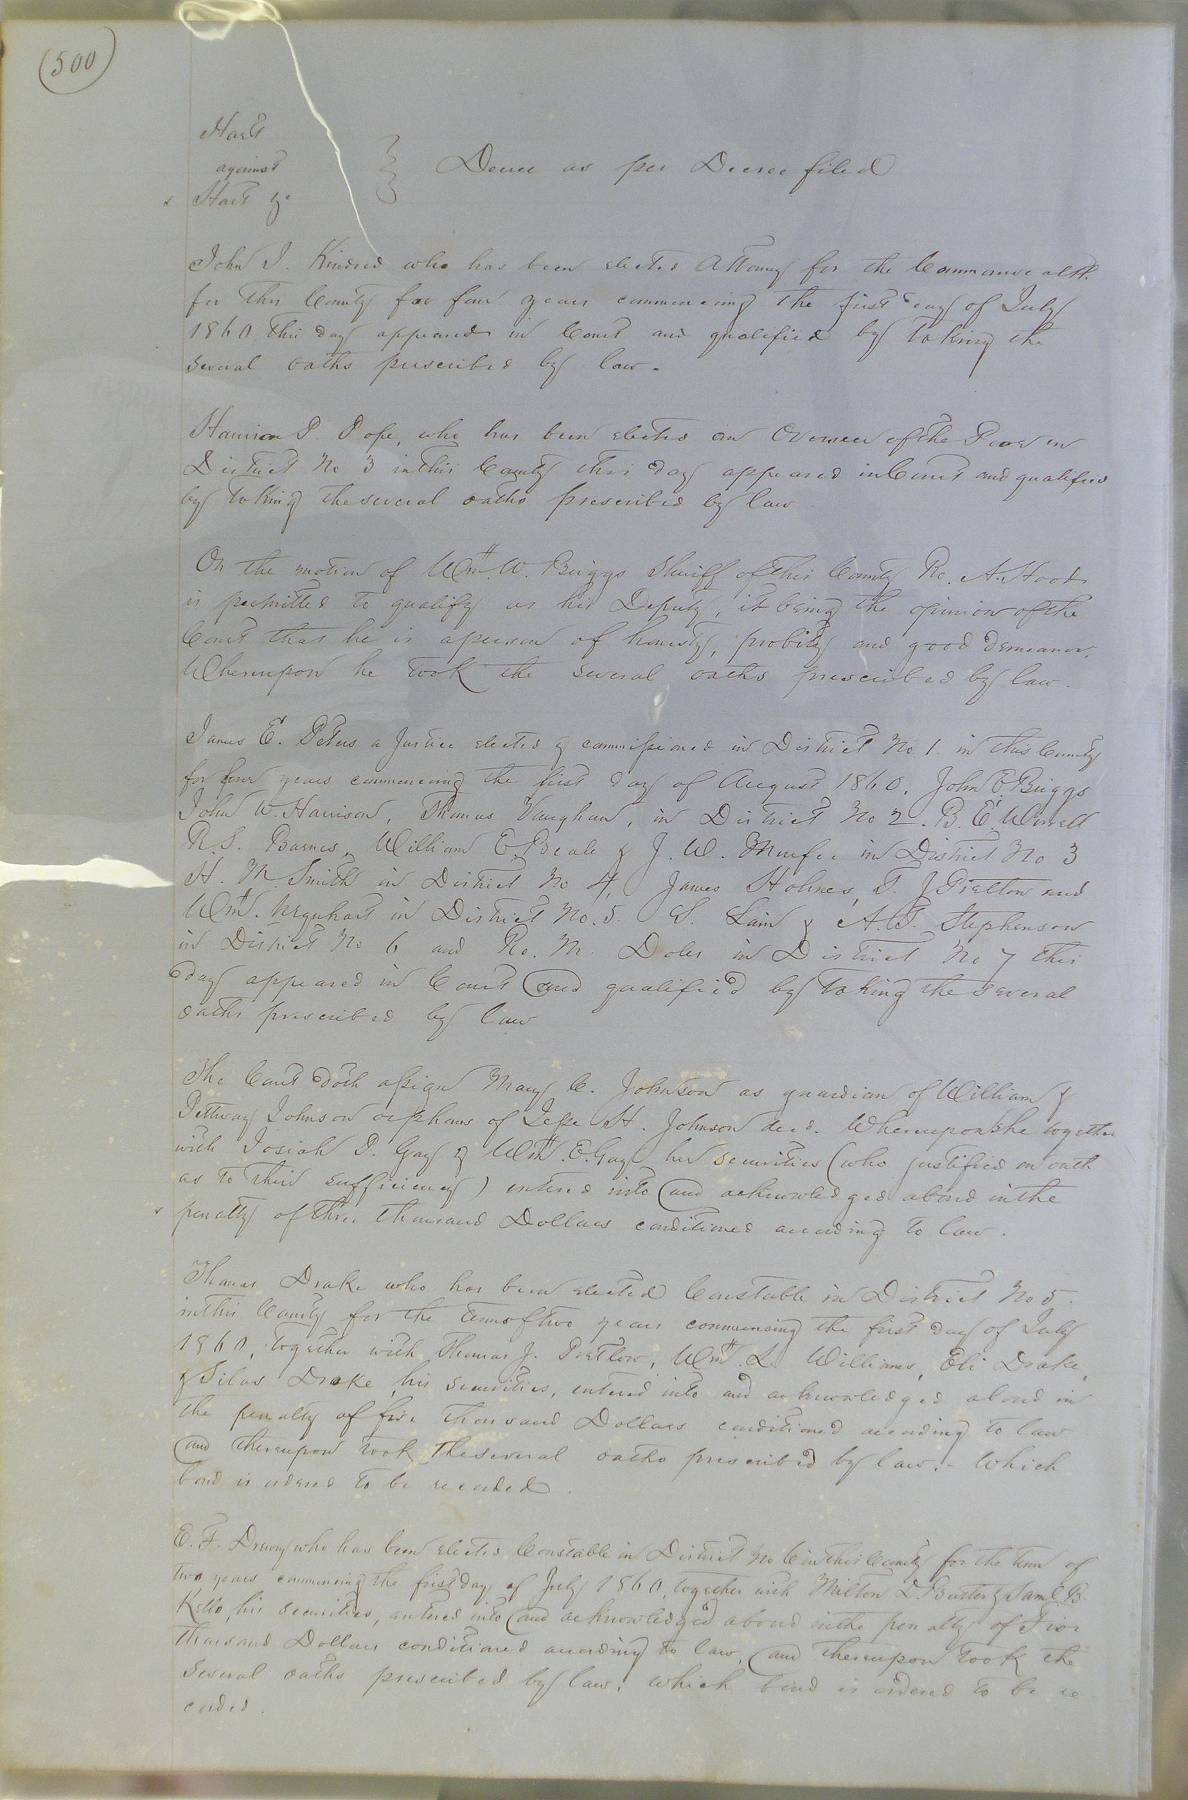 (500)
Hart
against
Hart &c
Decree as per Decree filed
John J. Kindred who has been elected Attorney for the Commonwealth
for this County for four years commencing the first day of July
1860, this day appeared in Court and qualified by taking the
several oaths prescribed by law.
Harrison P. Pope, who has been elected an Overseer of the Poor in
District No 3 in this County this day appeared in Court and qualified
by taking the several oaths prescribed by law
On the motion of Wm. W. Briggs Sheriff of this County Ro. A.
is permitted to qualify as his Deputy, it being the opinion of the
Court that he is a person of honesty, probity and good demeanor.
Whereupon he took the several oaths prescribed by law.
James E. Peters a Justice elected & commissioned in District No 1. in this County
for four years commencing the first day of August 1860, John Briggs
John W. Harrison, Thomas Vaughan, in District No 2. B. E. Worrell
R. S. Barnes, William E. Beale & J. W. Murfee in District No 3
H. M. Smith in District No 4, James Holmes, T. J. Pretlow and
Wm. Urquhart in District No. 5. S. Lain & A. J. Stephenson
in District No 6 and Ro. M. Doles in District No 7 this
day appeared in Court and qualified by taking the several
oaths prescribed by law
The Court doth assign Mary C. Johnson as guardian of William &
Pettway Johnson orphans of Jesse H. Johnson decd. Whereupon she together
with Josiah P. Gay & Wm. E. Gay her securities (who justified on oath
as to their sufficiency) entered into and acknowledged a bond in the
penalty of three thousand Dollars conditioned according to law.
Thomas Drake who has been elected Constable in District No 5.
in this County for the term of two years commencing the first day of July
1860, together with Thomas J. Pretlow, Wm. L. Williams, Eli Drake,
& Silas Drake his securities, entered into and acknowledged a bond in
the penalty of five thousand Dollars conditioned according to law
and thereupon took the several oaths prescribed by law. - Which
bond is ordered to be recorded.
E. F. Drewry who has been elected Constable in District No 6 in this County for the term of
two years commencing the first day of July 1860, together with Milton D. & Saml. B.
Kello his securities, entered into and acknowledged a bond in the penalty of Five
thousand Dollars conditioned according to law, and thereupon took the
several oaths prescribed by law, which bond is ordered to be re
corded.